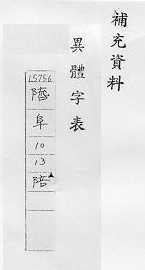 補充資料
異體字表
15756
阜
10
13